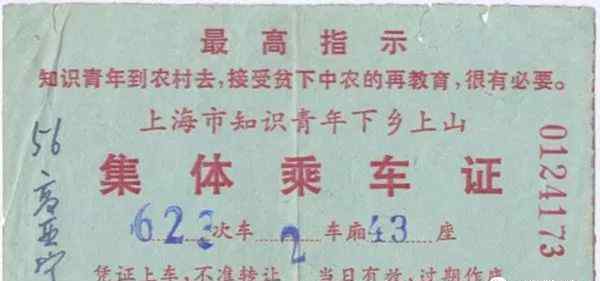 最高指示
知识青年到农村去，接受贫下中农的再教育，很有必要。
上海市知识青年下乡上山
集体乘车证
623次车2车厢43座
凭证上车，不准转让 当日有效，过期作废
0124173
56